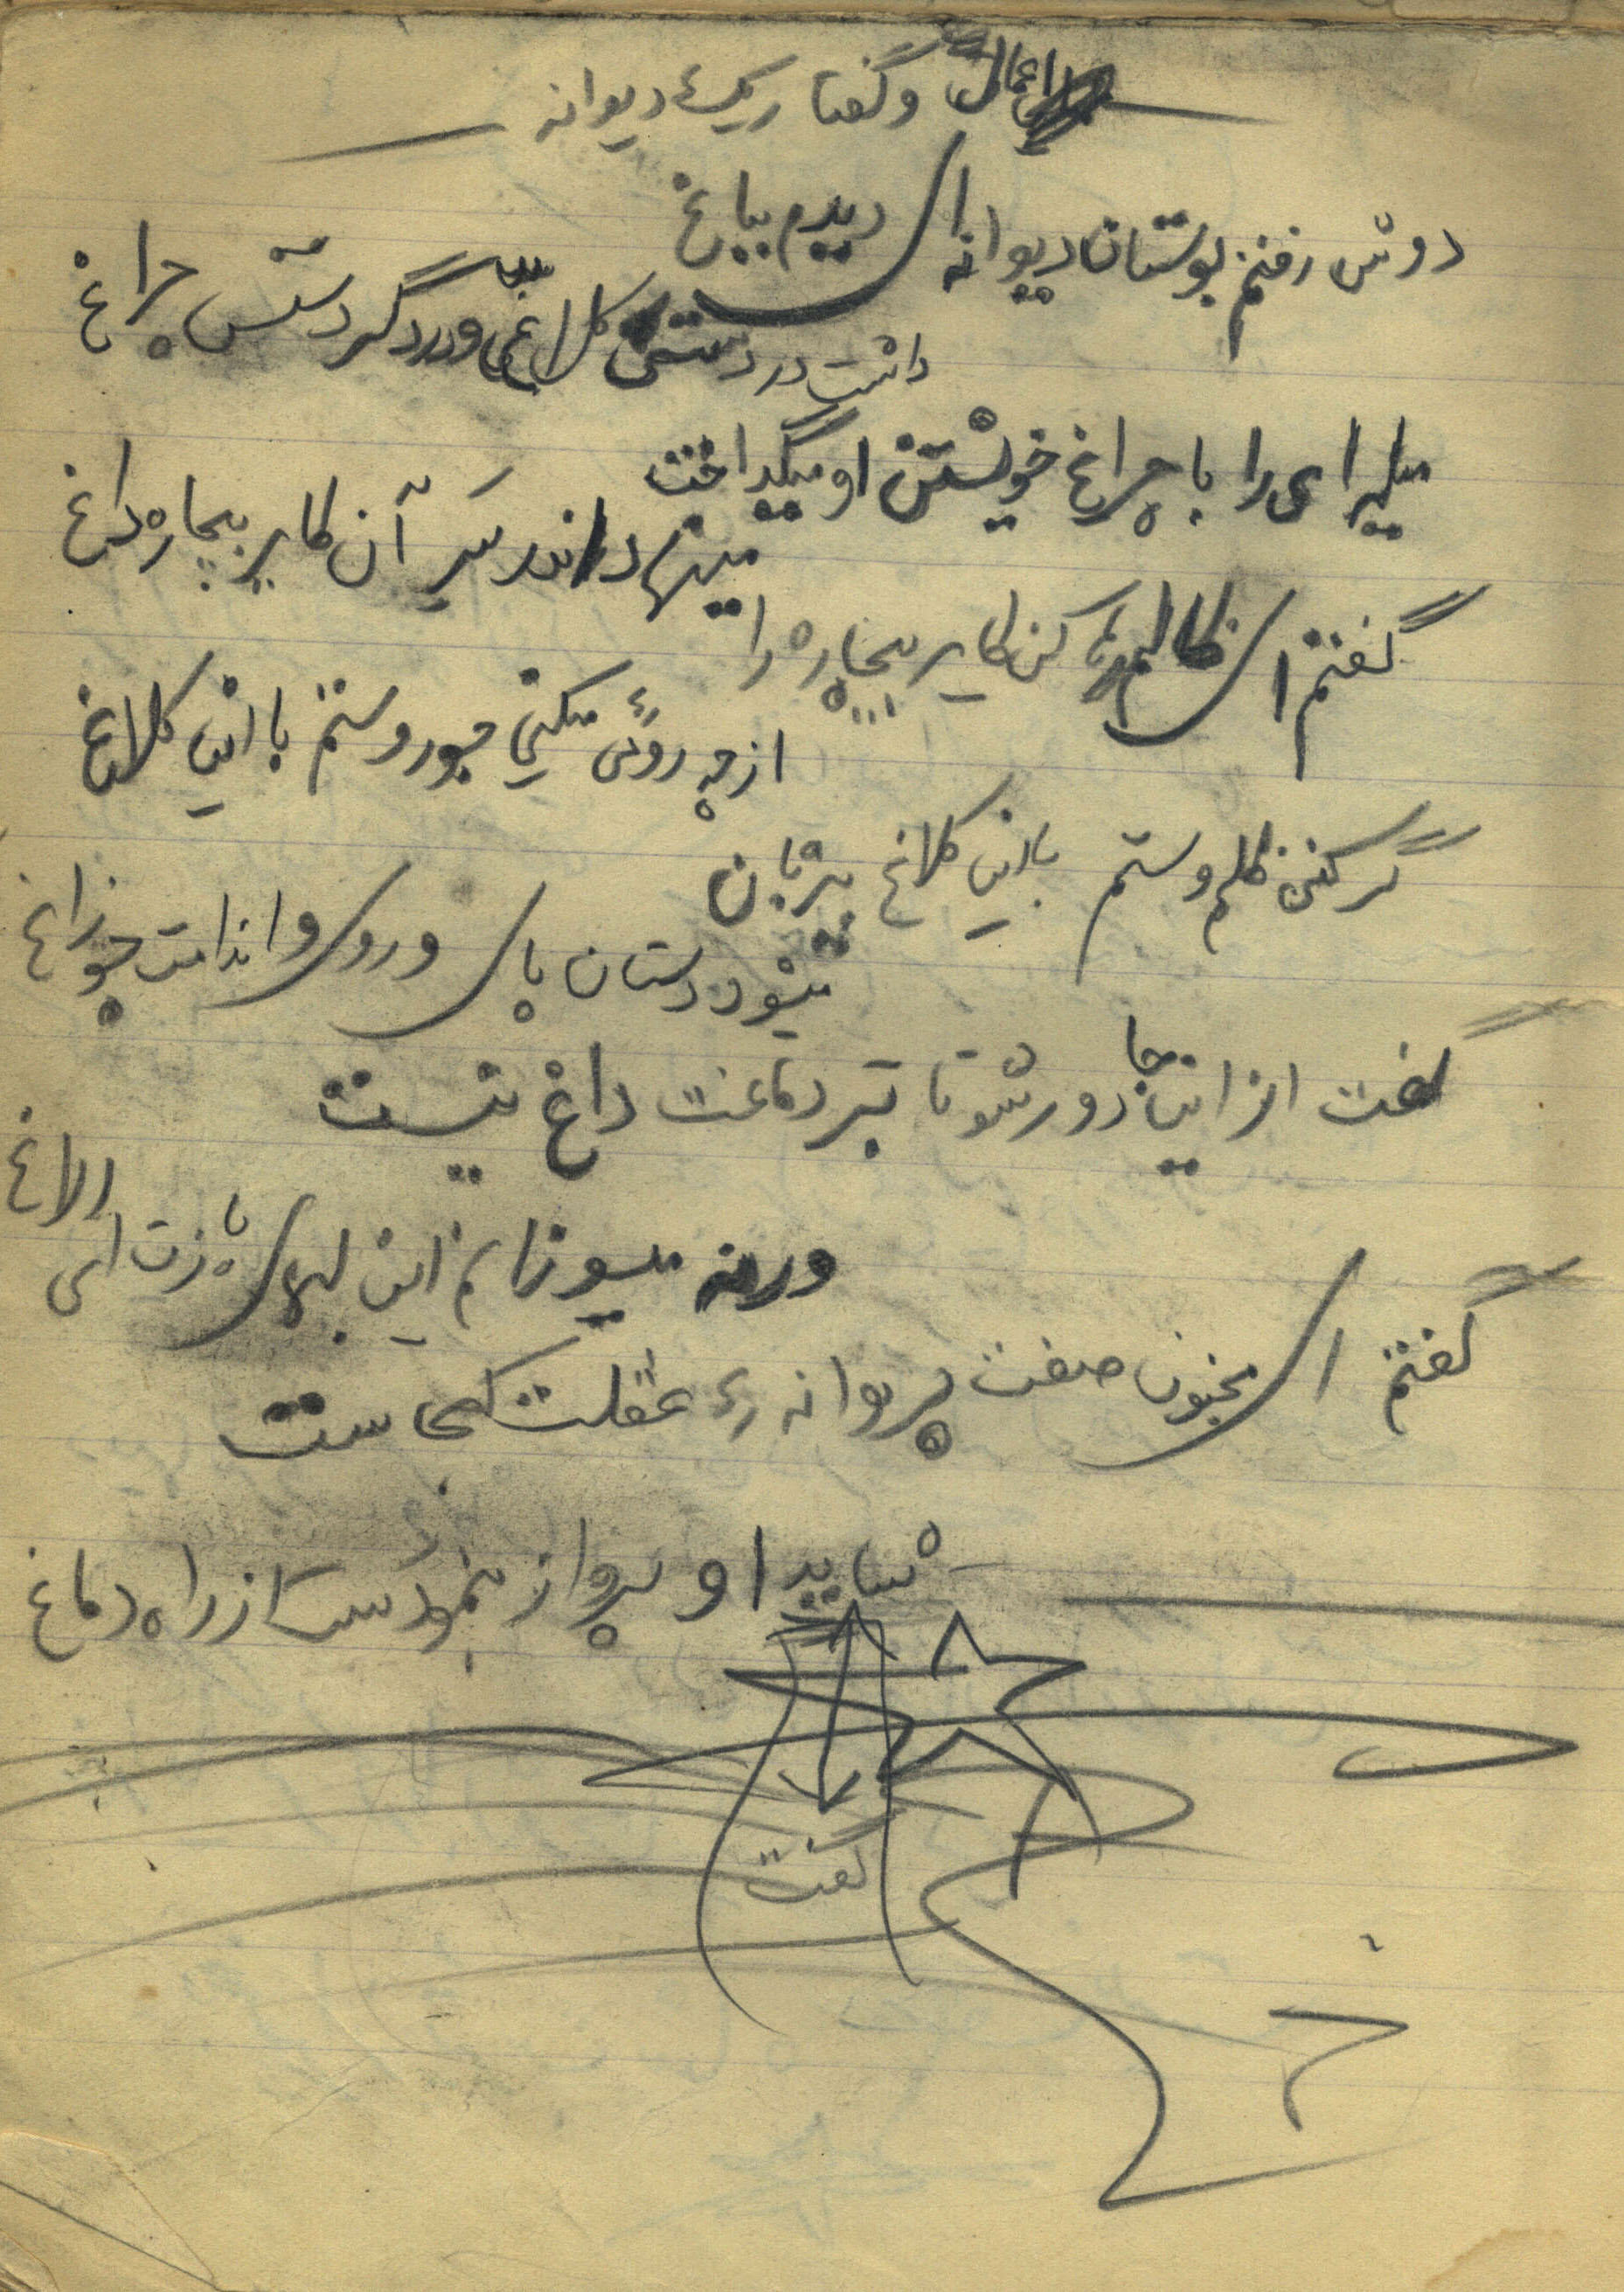 اعمال و گفتار یک دیوانه
دوش رفتم بوستان دیوانه‌ای دیدم بباغ
داشت در دستش کلاغی و در دگر دستش چراغ
میله‌ای را با چراغ خویشتن او میگداخت
مینهاد اندر سر آن طایر بیچاره داغ
گفتم ای ظالم رها کن طایر بیچاره را
از چه روئی میکنی جور و ستم با این کلاغ
گر کنی ظلم و ستم با این کلاغ بیزبان
میشود دستان پای و روی و اندامت چو زاغ
گفت از اینجا دور شو تا بر دماغت داغ نیست
ورنه میسوزانم این لبهای بازت ای الاغ
گفتم ای مجنون صفت پروانهٔ عقلت کجاست
شاید او پرواز بنمودست از راه دماغ
گفت